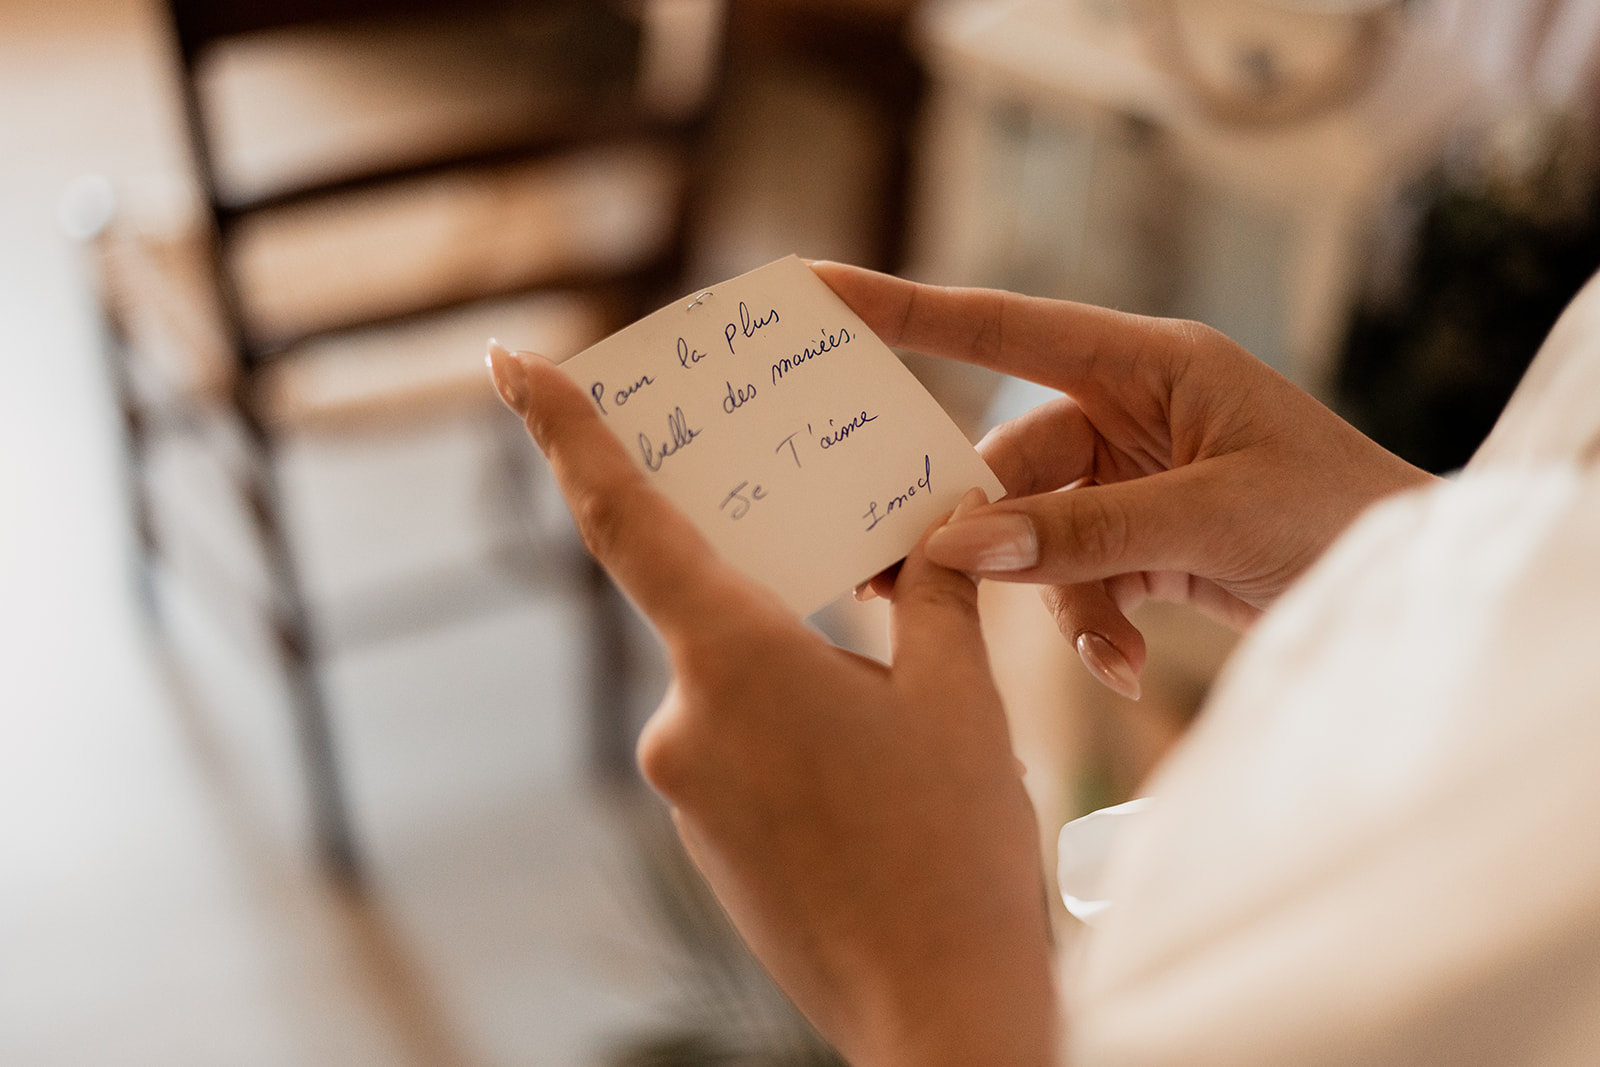 Pour la plus
belle des mariées,
Je T'aime
Imad